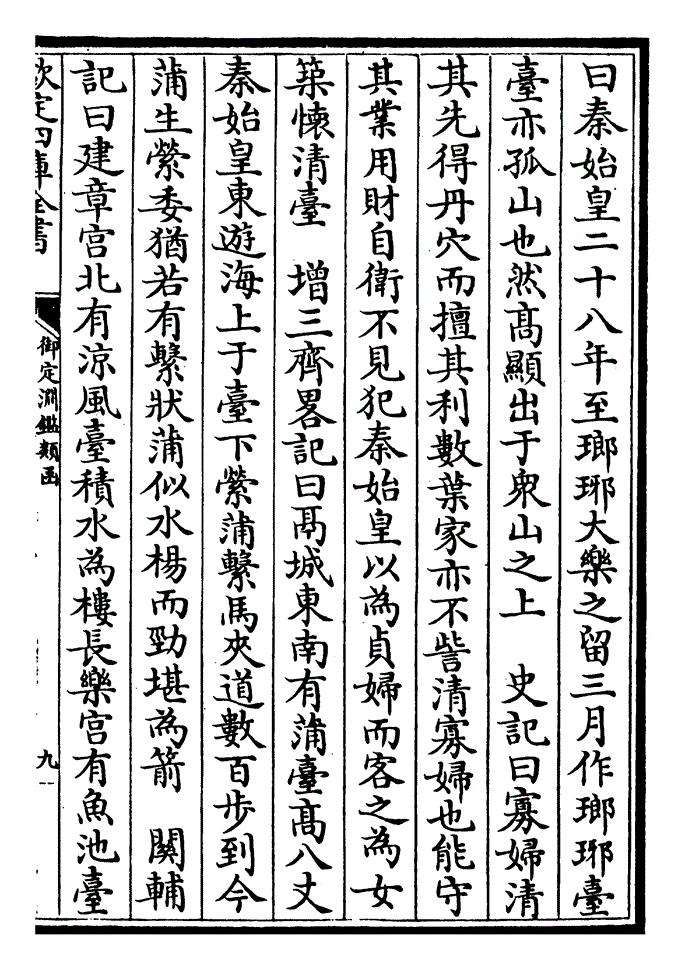 曰秦始皇二十八年至瑯琊大樂之留三月作瑯琊臺
臺亦孤山也然髙顯出于衆山之上　史記曰寡婦清
其先得丹穴而擅其利數葉家亦不訾清寡婦也能守
其業用財自衛不見犯秦始皇以為貞婦而客之為女
築懷清臺　增三齊畧記曰鬲城東南有蒲臺髙八丈
秦始皇東遊海上于臺下縈蒲繫馬夾道數百步到今
蒲生縈委猶若有繫狀蒲似水楊而勁堪為箭　關輔
記曰建章宫北有涼風臺積水為樓長樂宫有魚池臺
欽定四庫全書
御定淵鑑類函
九